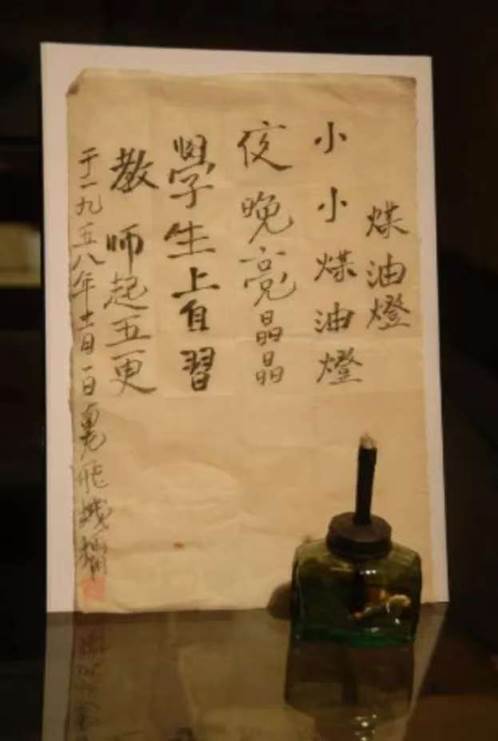 煤油燈
小小煤油燈
夜晚亮晶晶
學生上自習
教師起五更
于一九五八年十一月一日